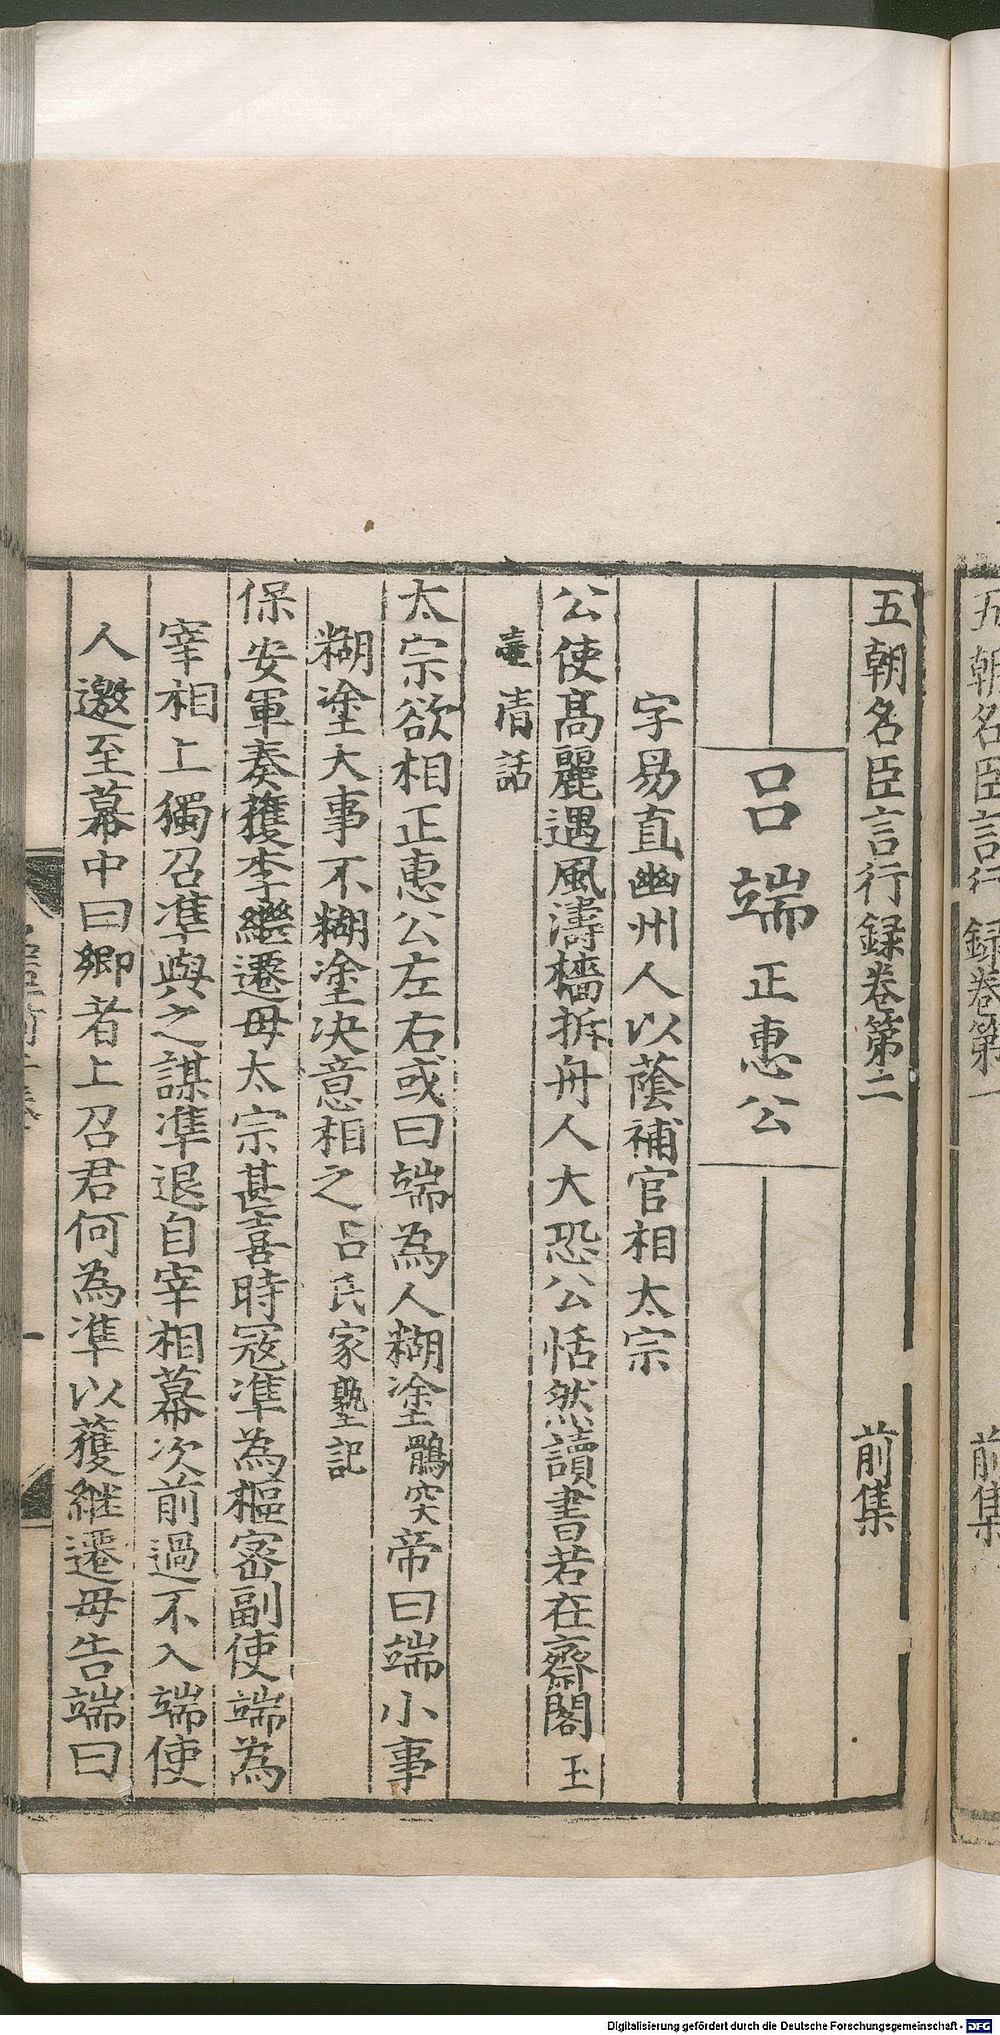 五朝名臣言行録卷第二 前集
吕端 正惠公
字昜直幽州人以蔭補官相太宗
公使髙麗遇風濤檣拆舟人大恐公恬然讀書若在齋閣 玉
壷清話
太宗欲相正惠公左右或曰端為人糊塗鶻突帝曰端小事
糊塗大事不糊塗决意相之 吕氏家塾記
保安軍奏獲李繼遷母太宗甚喜時冦凖為樞密副使端為
宰相上獨召凖與之謀凖退自宰相幕次前過不入端使
人邀至幕中曰郷者上召君何為凖以獲継遷母告端曰
一
五朝名臣言行録卷第一 前集
Digitalisierung gefördert durch die Deutsche Forschungsgemeinschaft - DFG